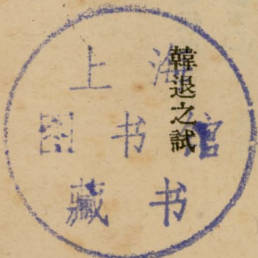 韓退之試
上海
图书馆
藏书